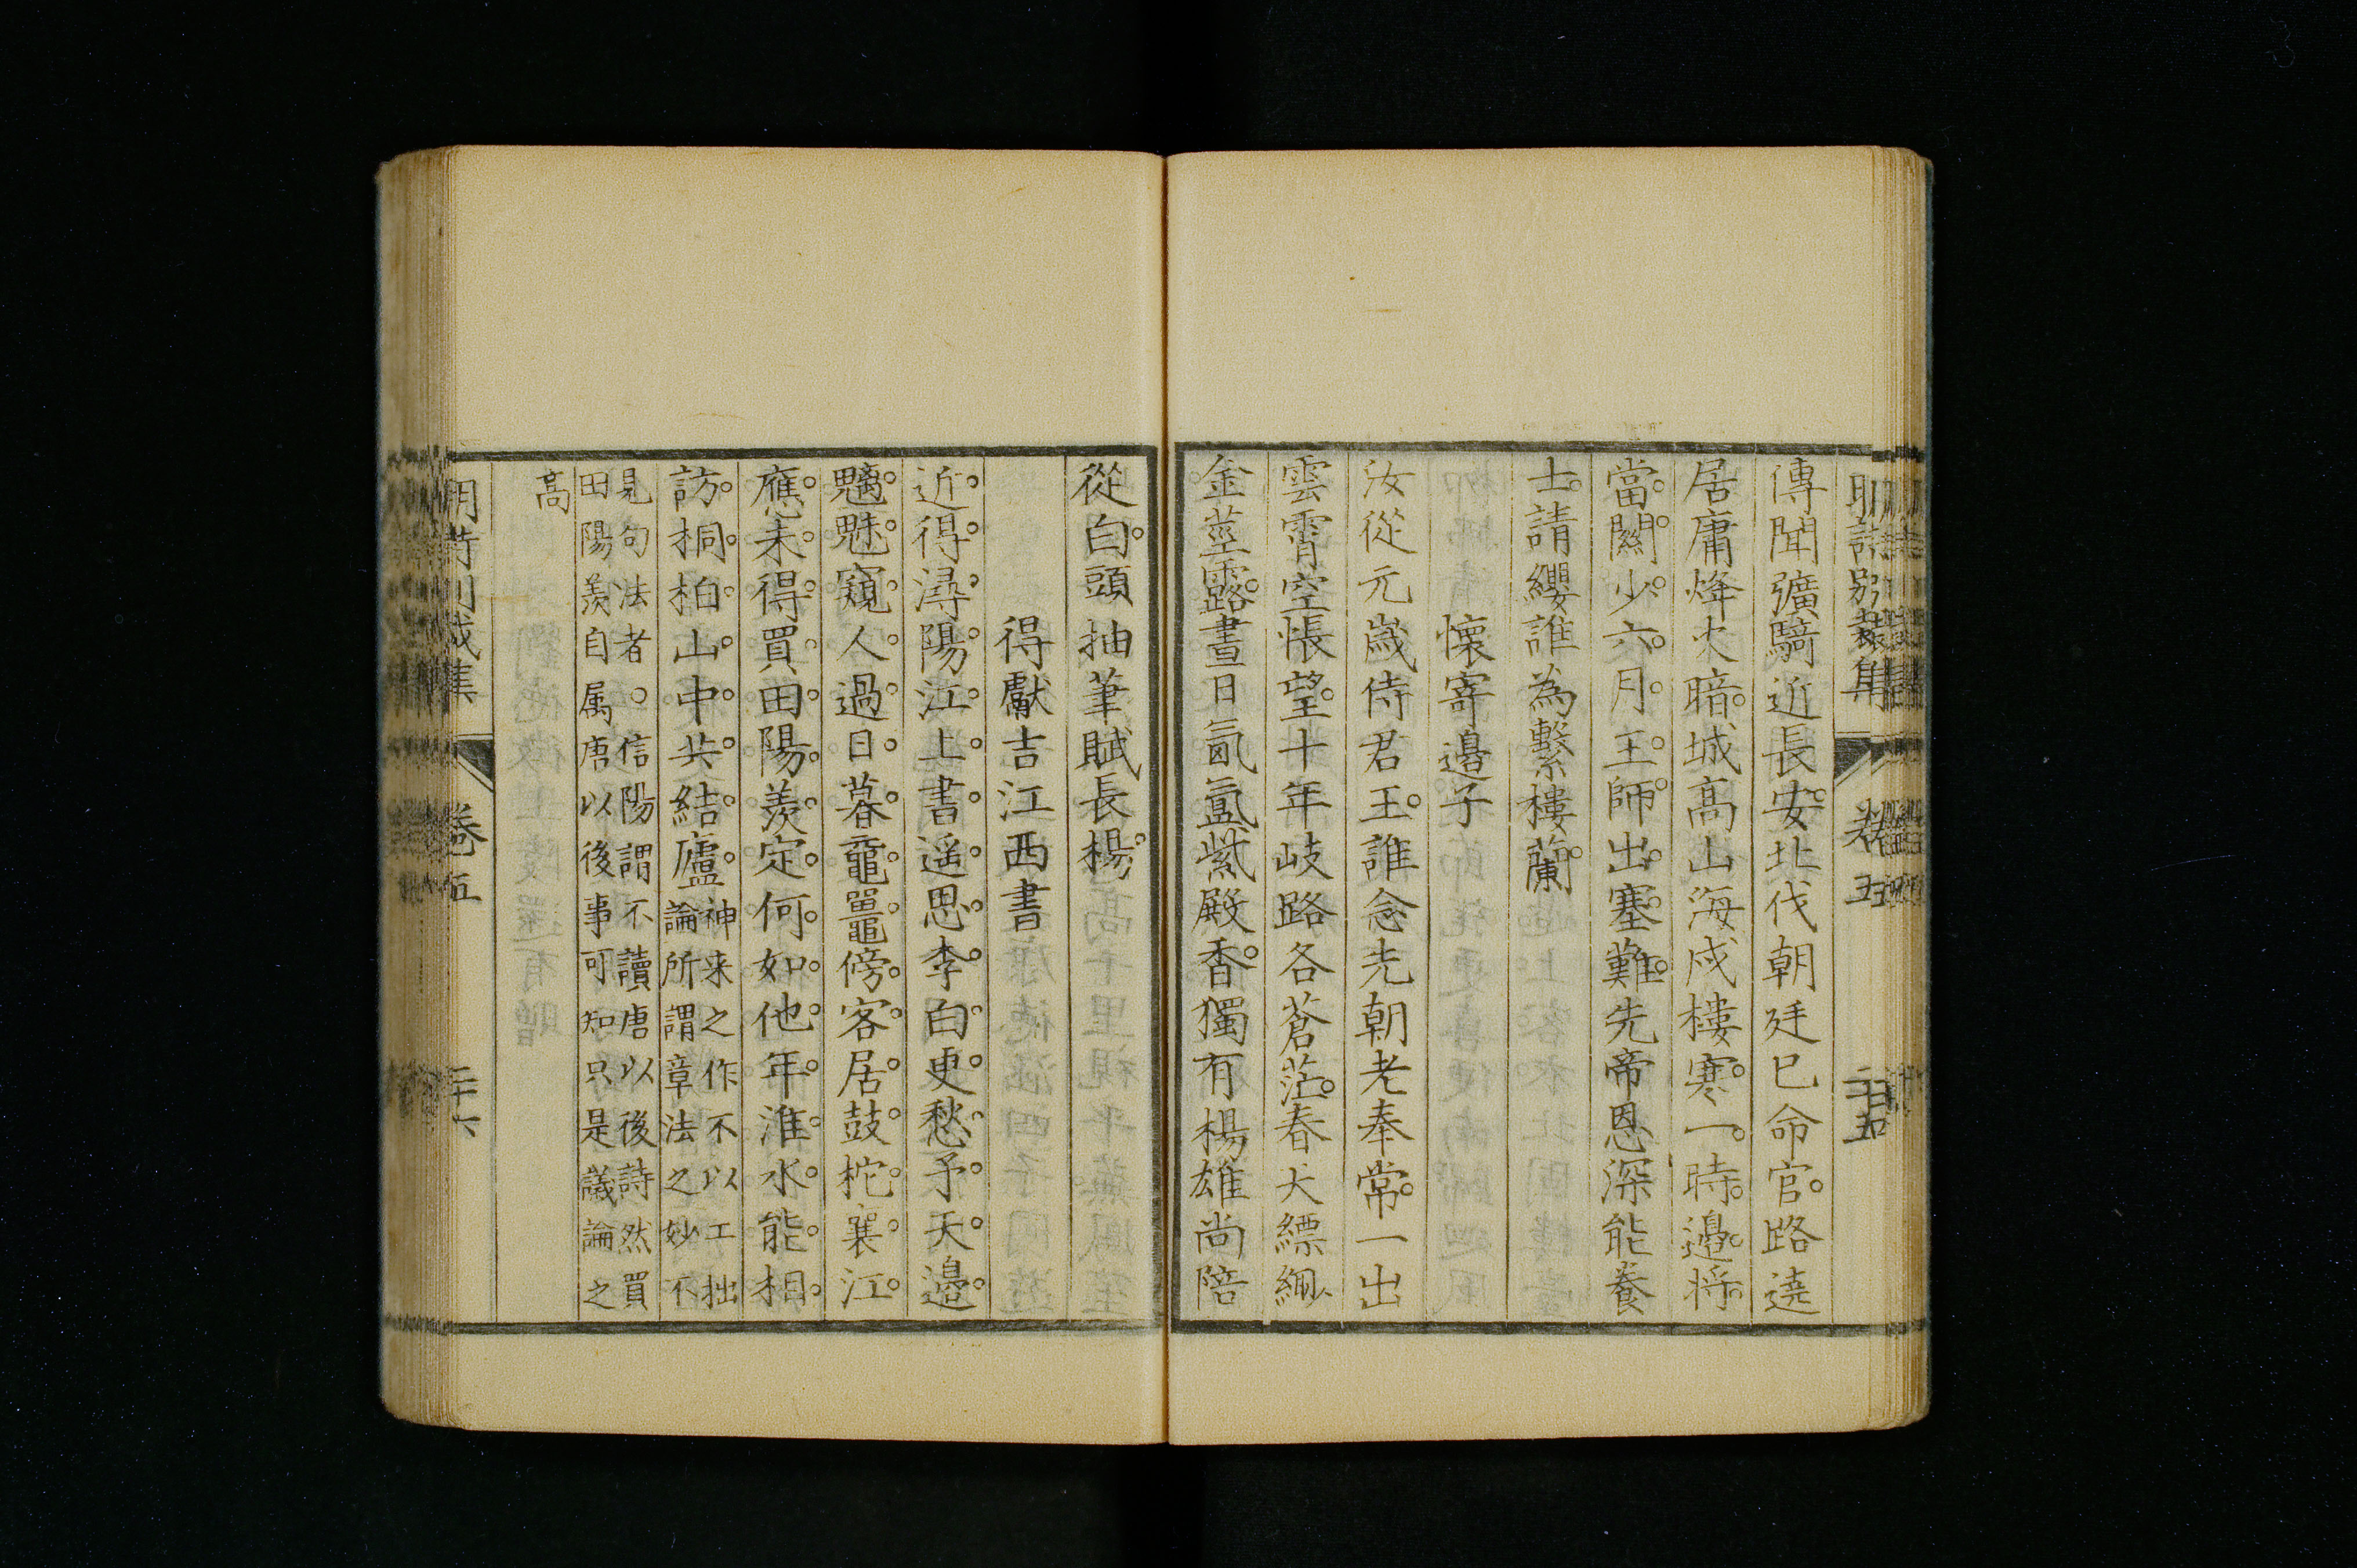 明詩別裁集 卷五 二十五
傳聞彍騎近長安。北伐朝廷巳命官。路遶
居庸烽火暗。城高山海戍樓寒。一。時。邊。將。
當。關。少。六。月。王。師。出。塞。難。先帝恩深能養
士。請纓誰為繫樓蘭。
懷寄邊子
汝從元歲侍君王。誰念先朝老奉常。一出
雲霄空悵望。十年岐路各蒼茫。春犬縹緗、
金莖露。晝日氤氳紫殿香。獨有楊雄尚陪
從。白頭抽筆賦長楊。
得獻吉江西書
近。得。潯。陽。江。上。書。遥。思。李。白。更。愁。予。天。邊。
魑。魅。窺。人。過。日。暮。黿。鼉。傍。客。居。鼓。柁。襄。江。
應。未。得。買。田。陽。羨。定。何。如。他。年。淮。水。能。相。
訪。桐。柏。山。中。共。結。廬。神来之作不以工拙
論所謂章法之妙不
見句法者○信陽謂不讀唐以後詩然買
田陽羨自属唐以後事可知只是議論之
高
明詩別裁集 卷五 二十六